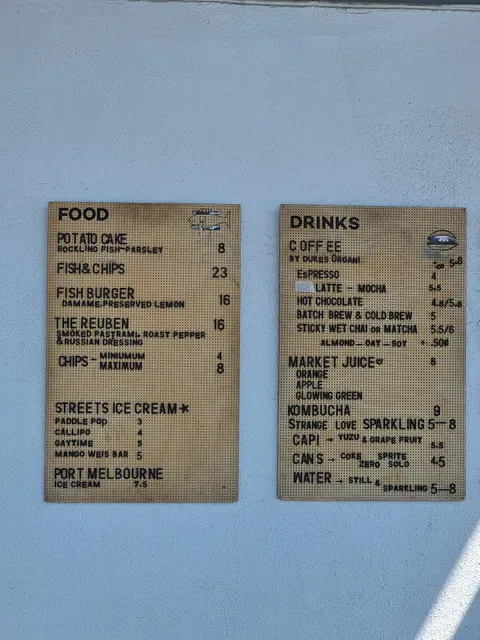 FOOD
POTATO CAKE
ROCKLING FISH-PARSLEY 8
FISH&CHIPS 23
FISH BURGER 16
DAMAME.PRESERVED LEMON
THE REUBEN 16
SMOKED PASTRAMI. ROAST PEPPER
& RUSSIAN DRESSING
CHIPS - MINIUMUM 4
MAXIMUM 8
STREETS ICE CREAM★
PADDLE POP 3
CALLIPO 4
GAYTIME 5
MANGO WEIS BAR 5
PORT MELBOURNE
ICE CREAM 7.5
DRINKS
COFFEE
BY DUKES ORGANI 5-8
ESPRESSO 4
LATTE - MOCHA 5.5
HOT CHOCOLATE 4.8/5.8
BATCH BREW & COLD BREW 5
STICKY WET CHAI OR MATCHA 5.5/6
ALMOND-OAT-SOY + .50¢
MARKET JUICE♥ 8
ORANGE
APPLE
GLOWING GREEN
KOMBUCHA 9
STRANGE LOVE SPARKLING 5-8
CAPI → YUZU & GRAPE FRUIT 5.5
CANS → COKE SPRITE 4.5
ZERO SOLO
WATER → STILL &
SPARKLING 5-8